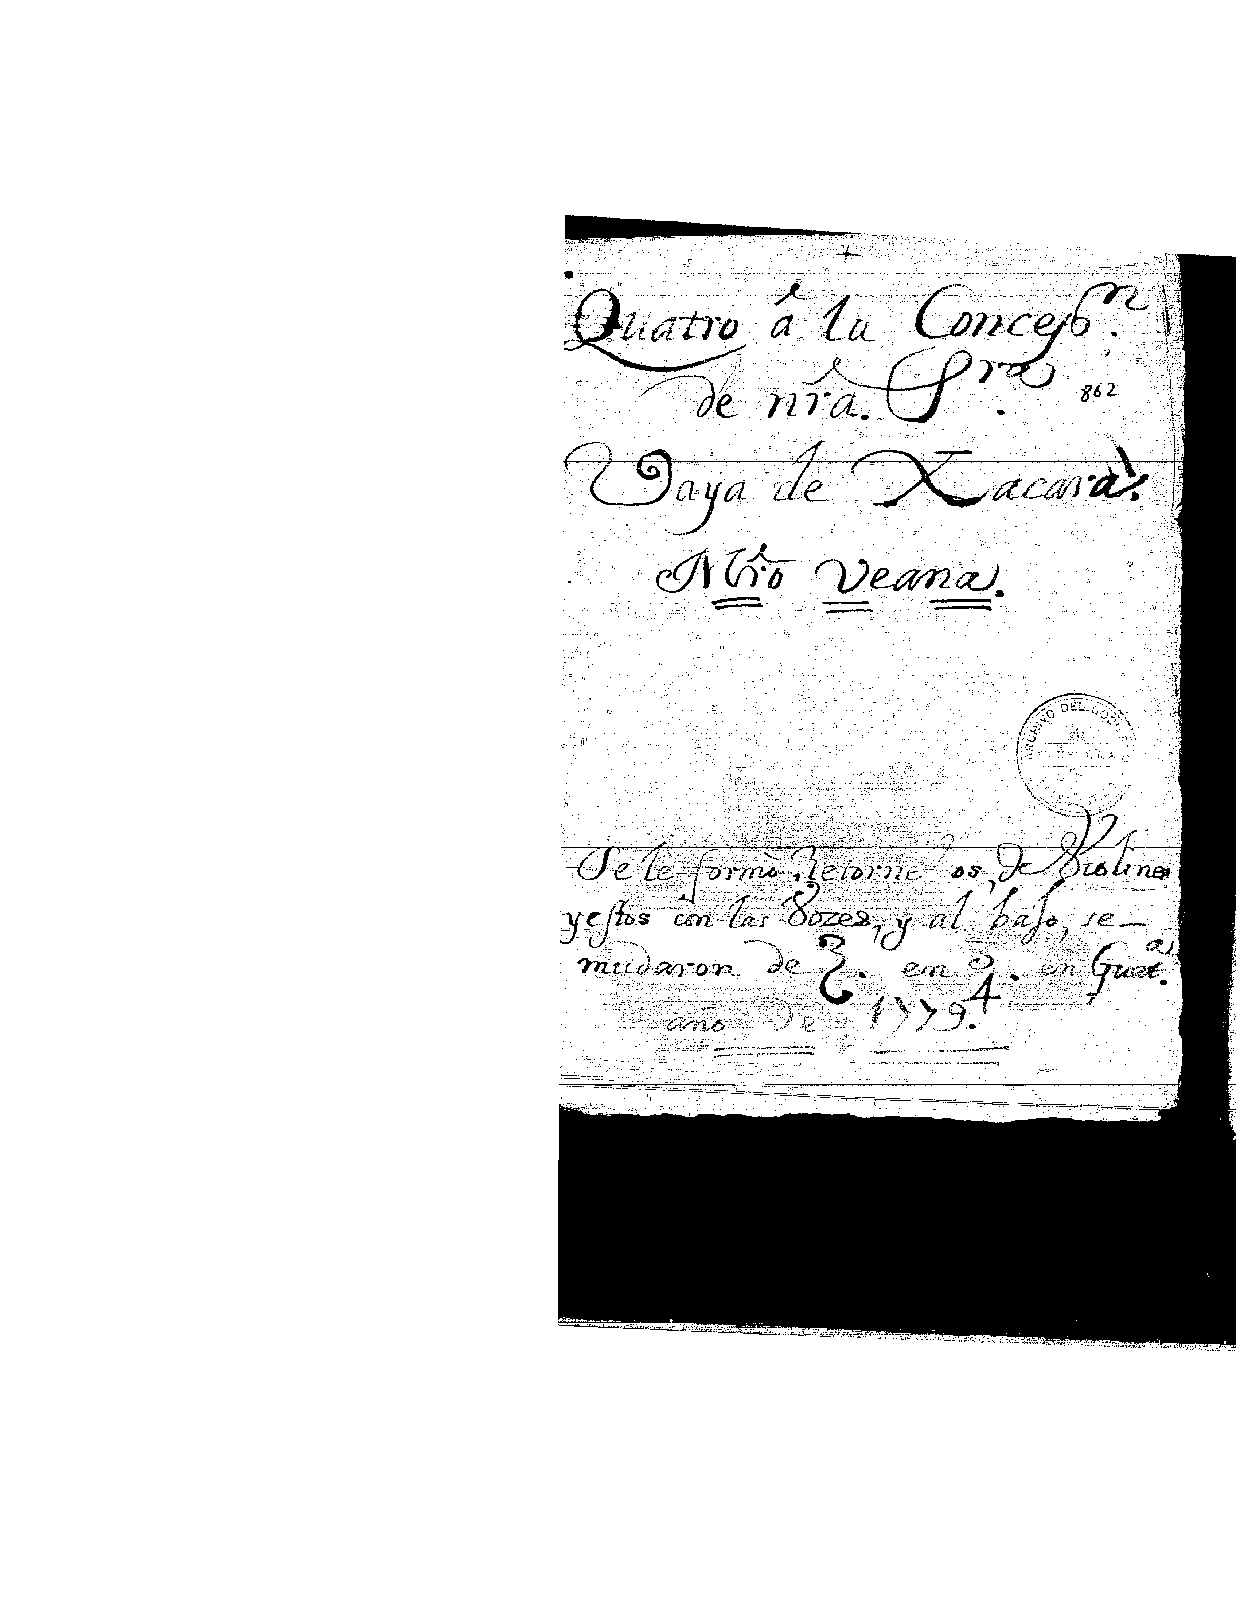 Quatro â la Concepn.
de nrâ. Sra.
862
Vaya de Xacara.
Mrô Veana.
ARCHIVO DEL
Se le formô Retorne os, de Violines
yestos con las Vozes, y al bajo, se
mudaron de en en Guata.
año de 1779.